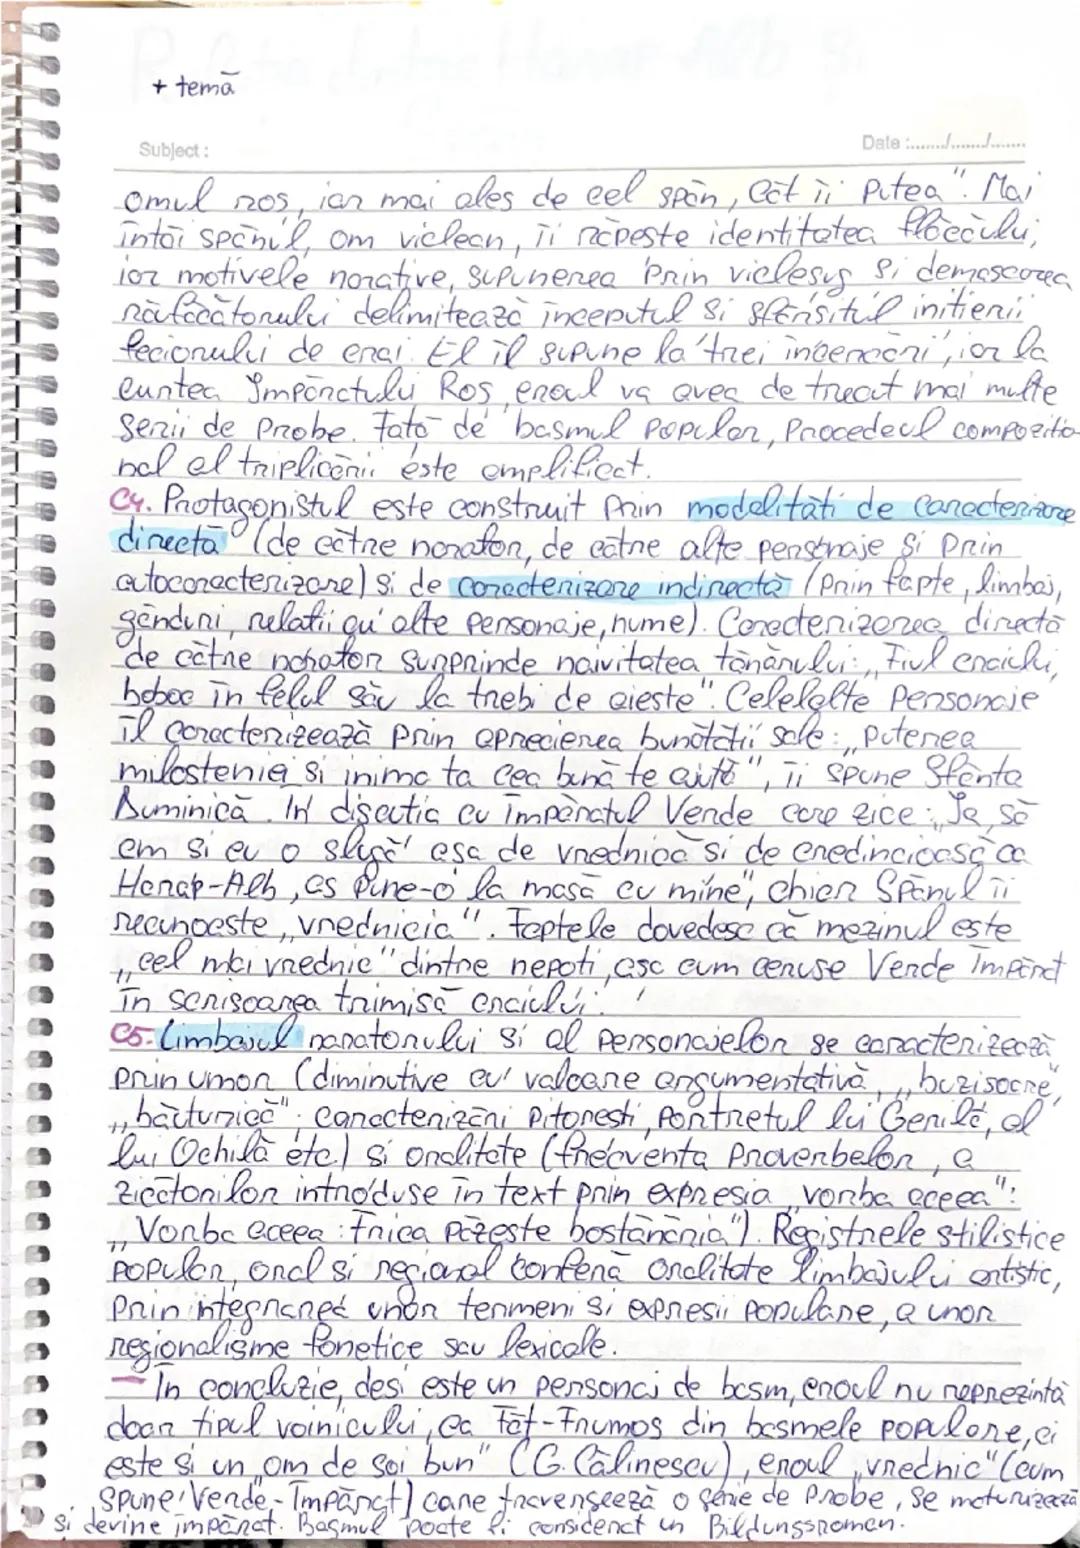 + temă
Subject :
Date :......../......./.......
omul roș, iar mai ales de cel spân, cât îi putea". Mai
întâi spânul, om viclean, îi răpește identitatea flăcăului,
iar motivele narative, supunerea prin vicleșug și demascarea
răufăcătorului delimitează începutul și sfârșitul inițierii
feciorului de crai. El îl supune la trei încercări, iar la
curtea Împăratului Roș, eroul va avea de trecut mai multe
serii de probe. Față de basmul popular, procedeul compozițio-
nal al triplicării este amplificat.
C4. Protagonistul este construit prin modalități de caracterizare
directă (de către narator, de către alte personaje și prin
autocaracterizare) și de caracterizare indirectă (prin fapte, limbaj,
gânduri, relații cu alte personaje, nume). Caracterizarea directă
de către narator surprinde naivitatea tânărului: „Fiul craiului,
boboc în felul său la trebi de aieste". Celelalte personaje
îl caracterizează prin aprecierea bunătății sale: „Puterea
milosteniei și inima ta cea bună te ajută", îi spune Sfânta
Duminică. În discuția cu Împăratul Verde care zice: „Ia, să
am și eu o slugă așa de vrednică și de credincioasă ca
Harap-Alb, aș pune-o la masă cu mine", chiar Spânul îi
recunoaște „vrednicia". Faptele dovedesc că mezinul este
„cel mai vrednic" dintre nepoți, așa cum ceruse Verde Împărat
în scrisoarea trimisă craiului.
C5. Limbajul naratorului și al personajelor se caracterizează
prin umor (diminutive cu valoare argumentativă, „buzișoare",
„băuturică"; caracterizări pitorești, portretul lui Gerilă, al
lui Ochilă etc.) și oralitate (frecvența proverbelor, a
zicătorilor introduse în text prin expresia „vorba aceea":
„Vorba aceea: Frica păzește bostănăria"). Registrele stilistice
popular, oral și regional conferă oralitate limbajului artistic,
prin integrarea unor termeni și expresii populare, a unor
regionalisme fonetice sau lexicale.
— În concluzie, deși este un personaj de basm, eroul nu reprezintă
doar tipul voinicului, ca Făt-Frumos din basmele populare, ci
este și un „om de soi bun" (G. Călinescu), eroul „vrednic" (cum
spune Verde-Împărat) care traversează o serie de probe, se maturizează
și devine împărat. Basmul poate fi considerat un Bildungsroman.